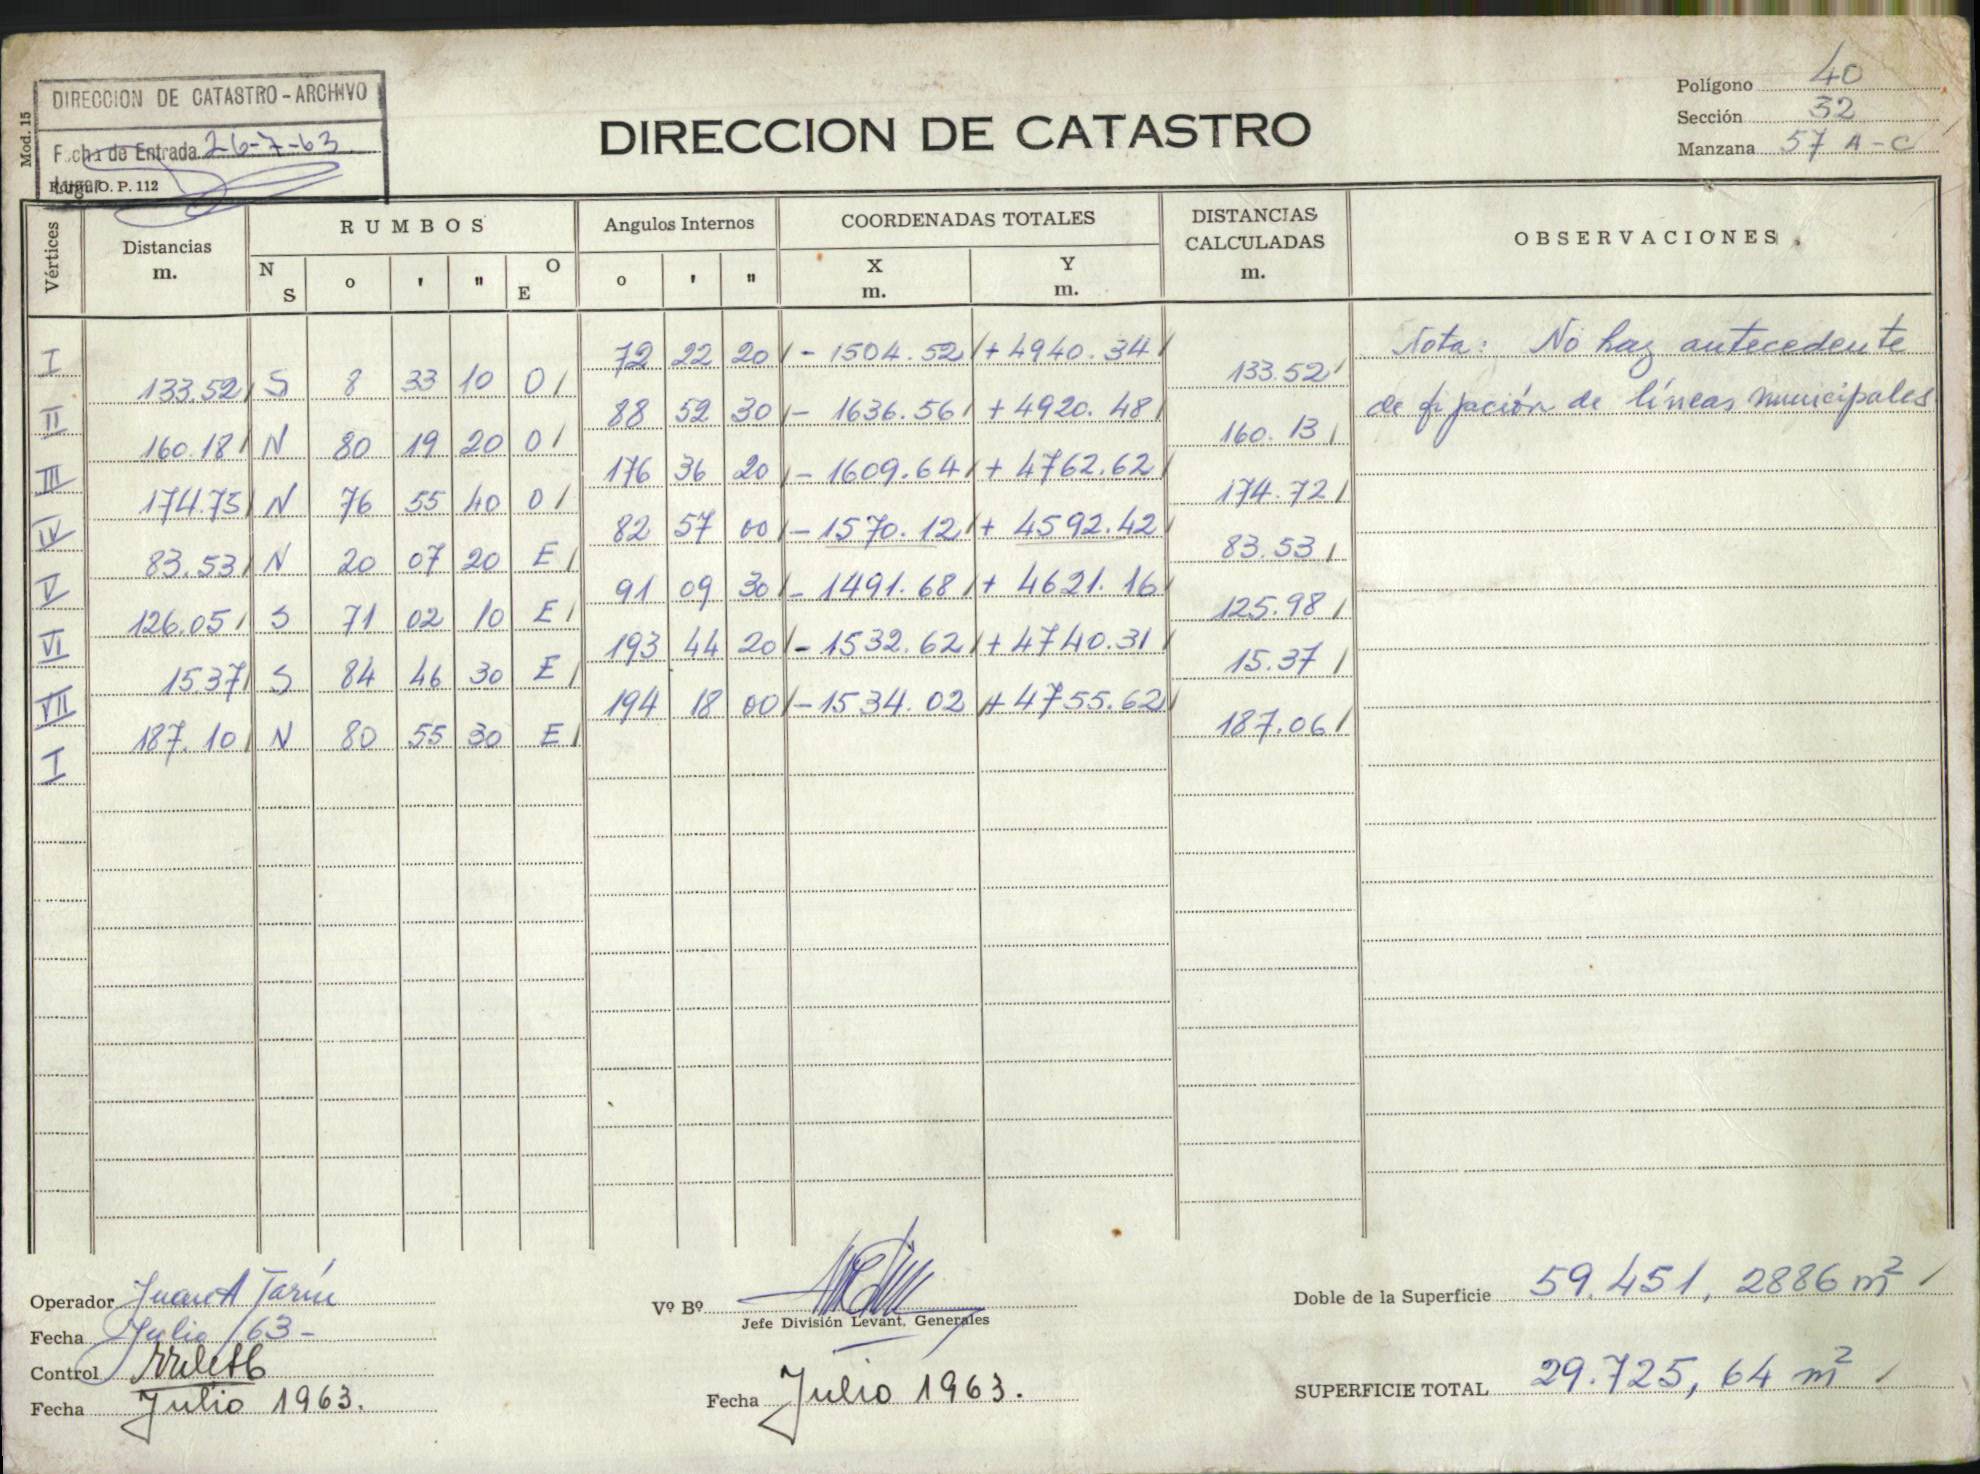 DIRECCION DE CATASTRO - ARCHIVO
Fecha de Entrada 26-7-63
Lugar
O. P. 112
Mod. 15
DIRECCION DE CATASTRO
Polígono 40
Sección 32
Manzana 57 A-C
Vértices Distancias m. RUMBOS N S o ' " O E Angulos Internos o ' " COORDENADAS TOTALES X m. Y m. DISTANCIAS CALCULADAS m. OBSERVACIONES
I 72 22 20 - 1504.52 + 4940.34
133.52 S 8 33 10 O 133.52
II 88 52 30 - 1636.56 + 4920.48
160.18 N 80 19 20 O 160.13
III 176 36 20 - 1609.64 + 4762.62
174.75 N 76 55 40 O 174.72
IV 82 57 00 - 1570.12 + 4592.42
83.53 N 20 07 20 E 83.53
V 91 09 30 - 1491.68 + 4621.16
126.05 S 71 02 10 E 125.98
VI 193 44 20 - 1532.62 + 4740.31
15.37 S 84 46 30 E 15.37
VII 194 18 00 - 1534.02 + 4755.62
187.10 N 80 55 30 E 187.06
I
Nota: No hay antecedente
de fijación de líneas municipales
Operador Juan A Tarín
Fecha Julio/63-
Control
Fecha Julio 1963.
Vº Bº
Jefe División Levant. Generales
Fecha Julio 1963.
Doble de la Superficie 59.451,2886 m²
SUPERFICIE TOTAL 29.725,64 m²